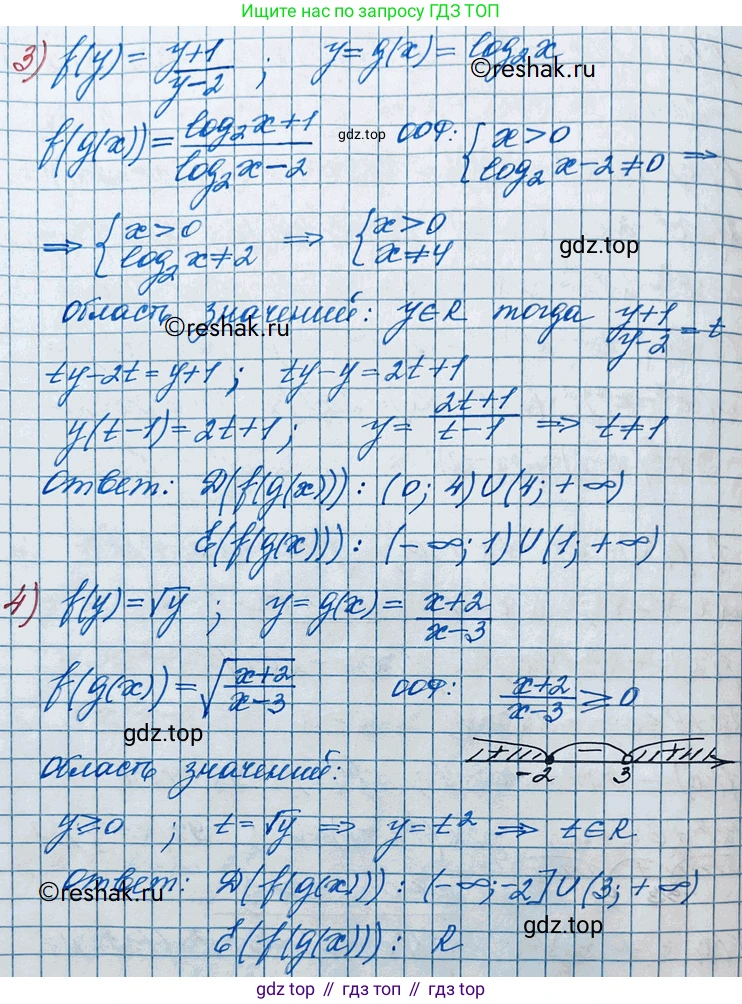 Ищите нас по запросу ГДЗ ТОП
3) f(y) = y+1/y-2 ; y = g(x) = log₂x
©reshak.ru
f(g(x)) = log₂x+1/log₂x-2 gdz.top ООФ: { x>0 log₂x-2≠0 ⇒
⇒ { x>0 log₂x≠2 ⇒ { x>0 x≠4
gdz.top
область значений: y∈R тогда y+1/y-2 = t
©reshak.ru
ty-2t = y+1 ; ty-y = 2t+1
y(t-1) = 2t+1 ; y = 2t+1/t-1 ⇒ t≠1
Ответ: D(f(g(x))) : (0; 4)∪(4; +∞)
E(f(g(x))) : (-∞; 1)∪(1; +∞)
4) f(y) = √y ; y = g(x) = x+2/x-3
f(g(x)) = √x+2/x-3 ООФ: x+2/x-3 ≥ 0
gdz.top
+ - +
-2 3
область значений:
y≥0 ; t=√y ⇒ y=t² ⇒ t∈R
Ответ: D(f(g(x))) : (-∞; -2]∪(3; +∞)
©reshak.ru
gdz.top
E(f(g(x))) : R
gdz.top // гдз.top // гдз.топ